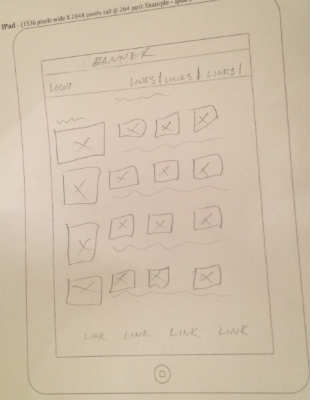 iPad - (1536 pixels wide X 2048 pixels tall @ 264 ppi): Example -
BANNER
LOGO LINKS | LINKS | LINKS |
LINK LINK LINK LINK